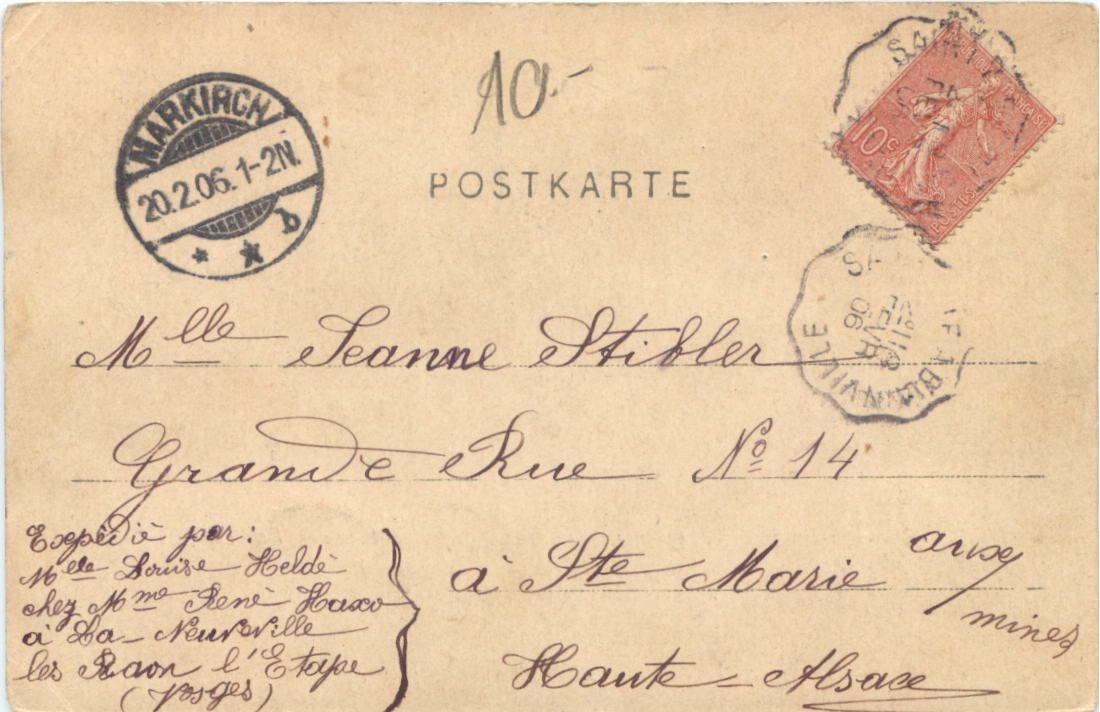 10.-
MARKIRCH
20.2.06.1-2N.
* * b
10c
POSTES
POSTKARTE
BLAINVILLE
06
Mlle Jeanne Stibler
Grande Rue No 14
à Ste Marie aux
mines
Haute-Alsace
Expédié par:
Mlle Louise Heldé
chez Mme René Haxo
à La-Neuveville
les Raon l'Etape
(Vosges)